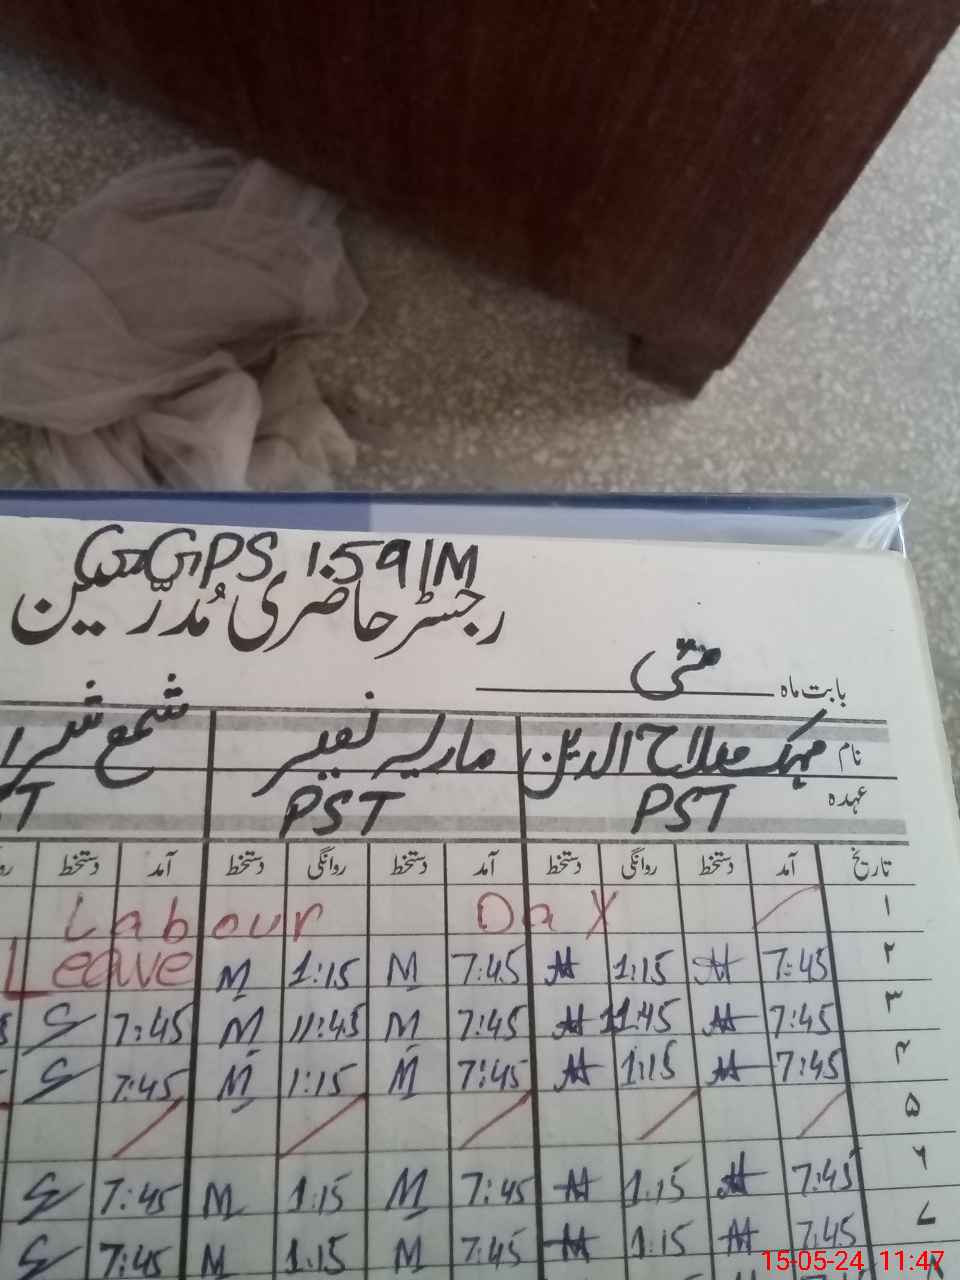 GGPS 159/M
رجسٹر حاضری مُدرّسین
بابت ماہ مئی
نام مہک صلاح الدین ماریہ نصیر شمع
عہدہ PST PST ST
تاریخ آمد دستخط روانگی دستخط آمد دستخط روانگی دستخط آمد دستخط
۱ Labour Day
۲ 7:45 1:15 7:45 M 1:15 M Leave
۳ 7:45 11:45 7:45 M 11:45 M 7:45
۴ 7:45 1:15 7:45 M 1:15 M 7:45
۵
۶ 7:45 1:15 7:45 M 1:15 M 7:45
۷ 7:45 1:15 7:45 M 1:15 M 7:45
۸
15-05-24 11:47